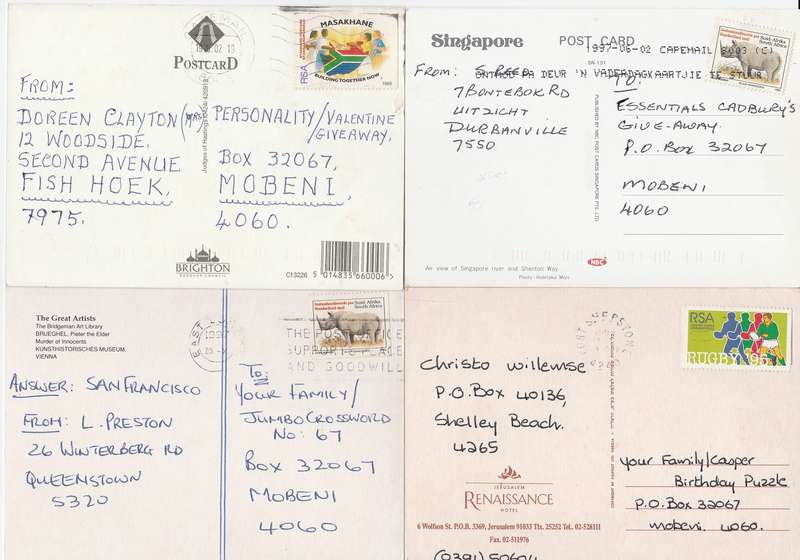 POSTCARD
Judges of Hastings (0424) 420919
MASAKHANE
RSA
BUILDING TOGETHER NOW
1995
FROM:
DOREEN CLAYTON (MRS)
12 WOODSIDE,
SECOND AVENUE
FISH HOEK,
7975.
PERSONALITY/VALENTINE
GIVEAWAY,
BOX 32067,
MOBENI,
4060.
BRIGHTON
BOROUGH COUNCIL
C13226
5 014835 660006 >
Singapore
POST CARD
SW-131
1997-06-02 CAPEMAIL 8003 (C)
ONTHOU PA DEUR 'N VADERDAGKAARTJIE TE STUUR
Suid-Afrika
South Africa
From: S. REED
7 BONTEBOK RD
UITZICHT
DURBANVILLE
7550
TO:
ESSENTIALS CADBURY'S
GIVE-AWAY.
P.O. BOX 32067
MOBENI
4060
PUBLISHED BY NBC POST CARDS SINGAPORE PTE LTD
An view of Singapore river and Shenton Way.
NBC
The Great Artists
The Bridgeman Art Library
BRUEGHEL, Pieter the Elder
Murder of Innocents
KUNSTHISTORISCHES MUSEUM,
VIENNA
Standardised mail
Suid-Afrika
South Africa
THE POST OFFICE
SUPPORTS PEACE
AND GOODWILL
ANSWER: SAN FRANCISCO
FROM: L. PRESTON
26 WINTERBERG RD
QUEENSTOWN
5320
TO:
YOUR FAMILY/
JUMBO CROSSWORD
NO: 67
BOX 32067
MOBENI
4060
RSA
RUGBY '95
Christo Willemse
P.O. Box 40136,
Shelley Beach.
4265
JERUSALEM
RENAISSANCE
HOTEL
6 Wolfson St. P.O.B. 3369, Jerusalem 91033 Tlx. 25252 Tel. 02-528111
Fax. 02-511976
Your Family/Casper
Birthday Puzzle
P.O. Box 32067
Mobeni. 4060.